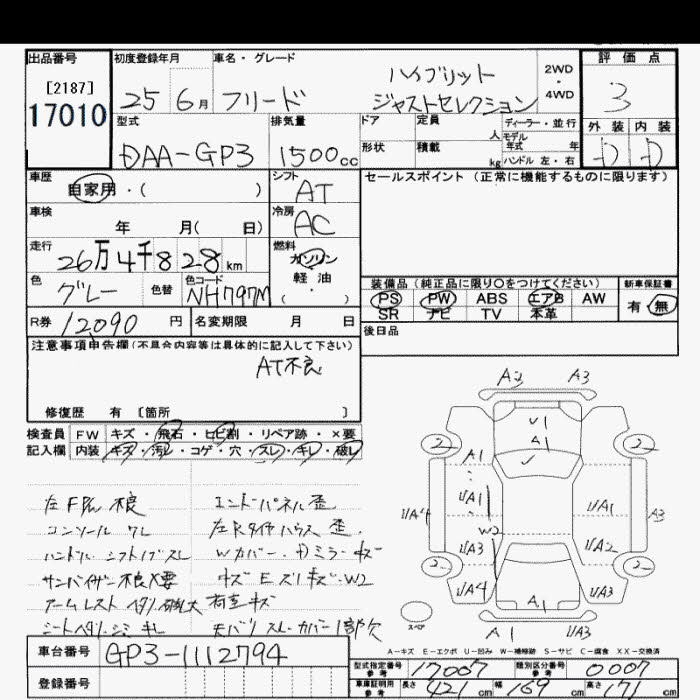 出品番号
[2187]
17010
初度登録年月
25 6月
車名・グレード
フリード
ハイブリット
ジャストセレクション
2WD
・
4WD
評価点
3
外装 内装
D D
型式
DAA-GP3
排気量
1500cc
ドア
定員
人
ディーラー・並行
モデル
年式 年
形状
積載
kg
ハンドル 左・右
車歴
自家用・( )
シフト
AT
セールスポイント (正常に機能するものに限ります)
車検
年 月( 日)
冷房
AC
走行
26万4千828km
燃料
ガソリン
軽油
( ・ )
色
グレー
色替
色コード
NH797M
装備品 (純正品に限り○をつけてください)
PS PW ABS エアB AW
SR ナビ TV 本革
新車保証書
有・無
R券 12090円
名変期限 月 日
後日品
注意事項申告欄(不具合内容等は具体的に記入して下さい)
AT不良
修復歴 有 [箇所 ]
検査員
記入欄
FW キズ・飛石・ヒビ割・リペア跡・×要
内装 キズ・汚レ・コゲ・穴・スレ・キレ・破レ
コンソール ワレ
ハンドル・シフトノブスレ
サンバイザー不良X要
エンドパネル歪
左Rタイヤハウス歪
荷室キズ
A2 A3
U1
A1
A1
2 2
UA1 UA1
UA4 A3
W2
UA3 UA2
2 2
UA4 UA3
A1
A1 UA3
スペア
A-キズ E-エクボ U-凹み W-補修跡 S-サビ C-腐食 XX-交換済
車台番号 GP3-1112794
登録番号
型式指定番号
参考
17007
類別区分番号
参考
0007
車庫証明用
参考
長さ 421cm 幅 169cm 高さ 171cm